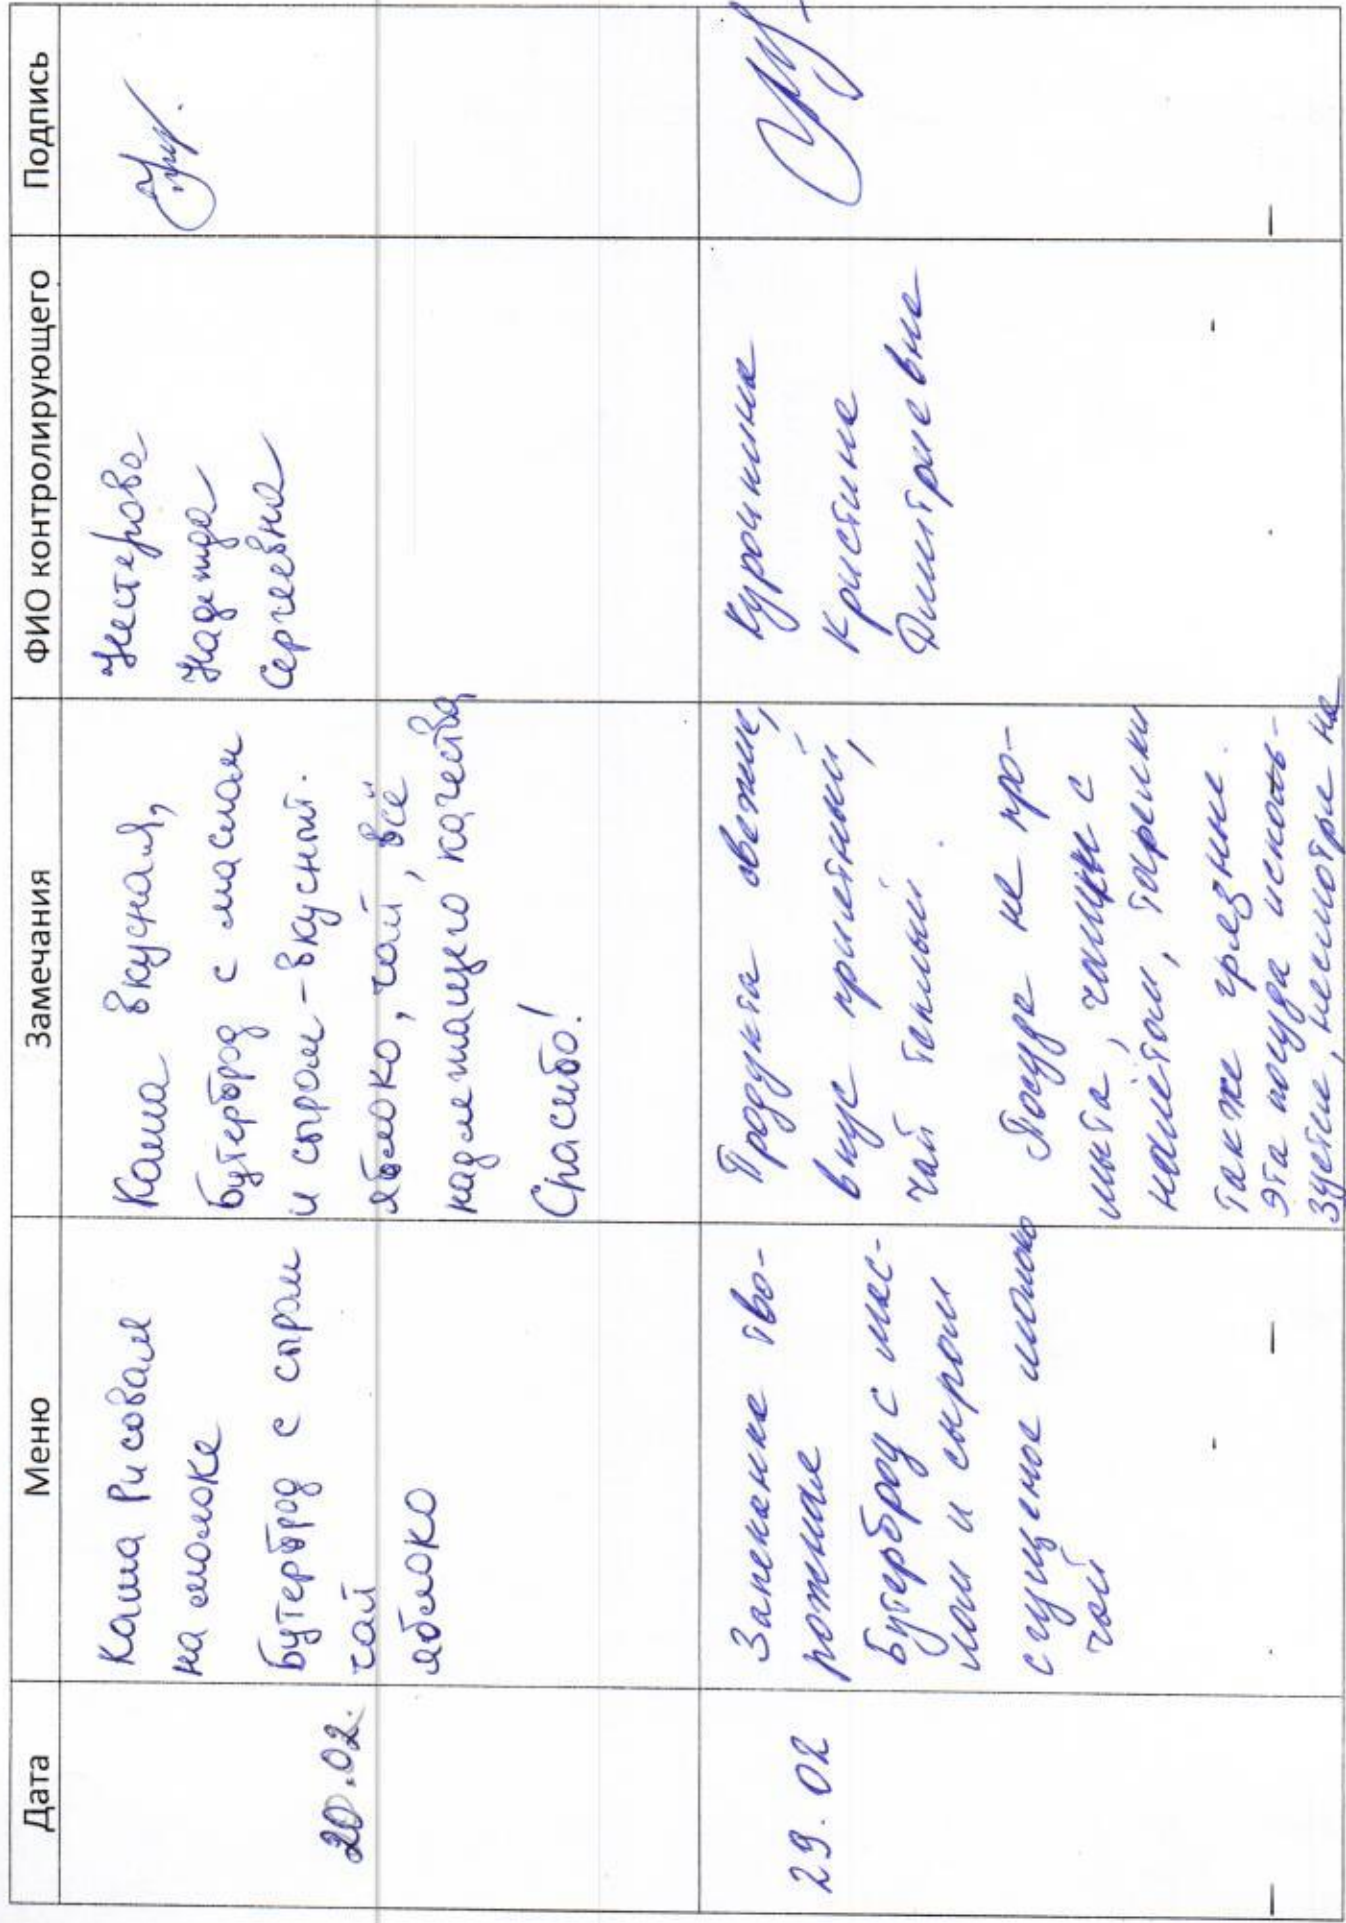 Дата Меню Замечания ФИО контролирующего Подпись
20.02.
Каша Рисовая
на молоке
бутерброд с сыром
чай
яблоко
Каша вкусная,
бутерброд с маслом
и сыром - вкусный.
яблоко, чай, всё
надлежащего качества
Спасибо!
Нестерова
Надежда
Сергеевна
29.02
Запеканка тво-
рожная
Бутерброд с мас-
лом и сыром
сгущеное молоко
чай
Продукты свежие,
вкус приятный,
чай теплый.
Посуда не про-
мыта, чашки с
налётом, тарелки
также грязные.
Эта посуда исполь-
зуется, несмотря на
Кристина
Дмитриевна